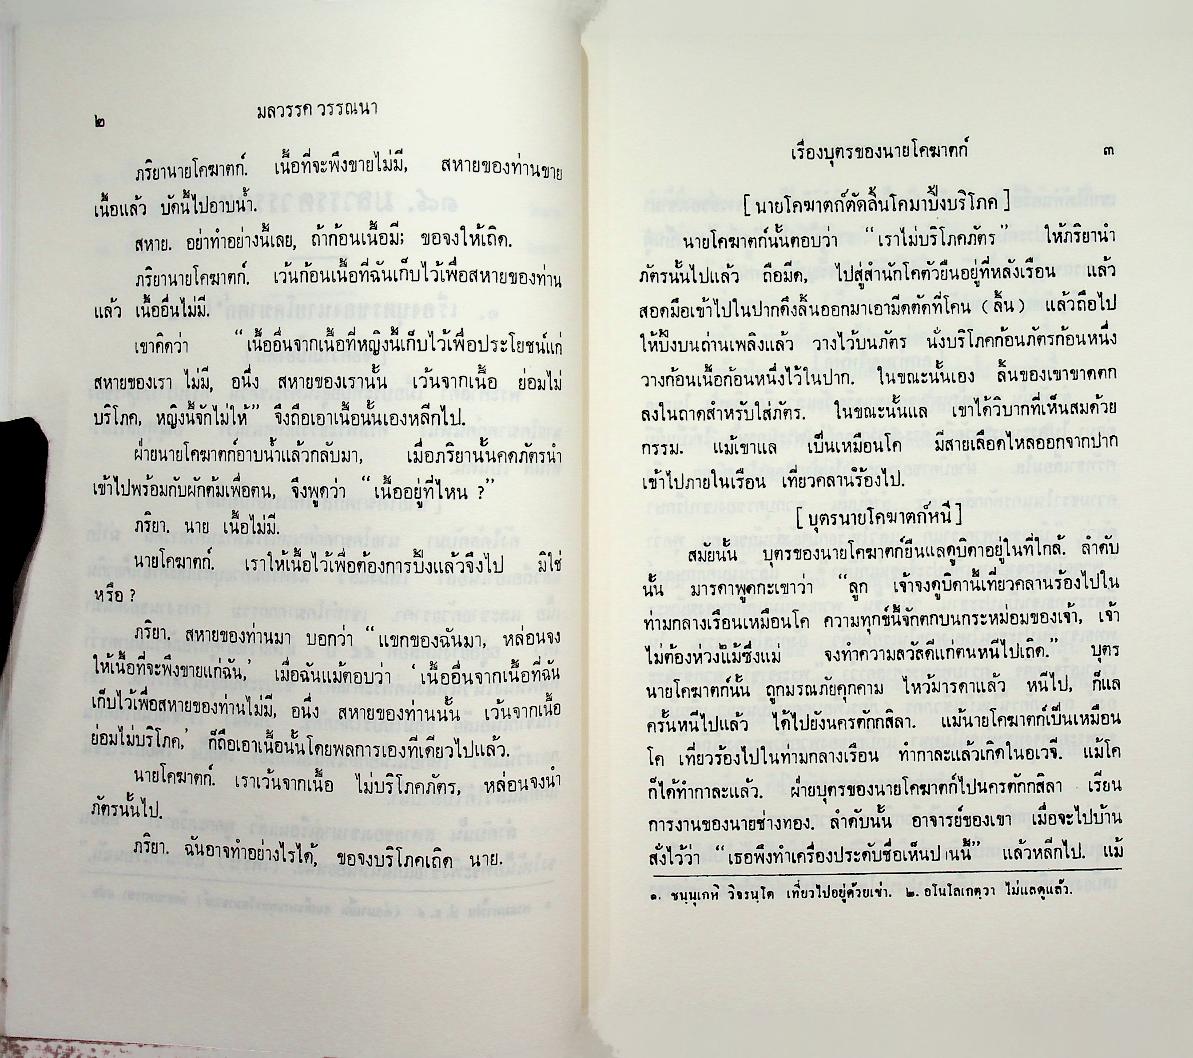 ๒
มลวรรค วรรณนา
ภริยานายโคฆาตก์. เนื้อที่จะพึงขายไม่มี, สหายของท่านขาย
เนื้อแล้ว บัดนี้ไปอาบน้ำ.
สหาย. อย่าทำอย่างนี้เลย, ถ้าก้อนเนื้อมี; ขอจงให้เถิด.
ภริยานายโคฆาตก์. เว้นก้อนเนื้อที่ฉันเก็บไว้เพื่อสหายของท่าน
แล้ว เนื้ออื่นไม่มี.
เขาคิดว่า “เนื้ออื่นจากเนื้อที่หญิงนี้เก็บไว้เพื่อประโยชน์แก่
สหายของเรา ไม่มี, อนึ่ง สหายของเรานั้น เว้นจากเนื้อ ย่อมไม่
บริโภค, หญิงนี้จักไม่ให้” จึงถือเอาเนื้อนั้นเองหลีกไป.
ฝ่ายนายโคฆาตก์อาบน้ำแล้วกลับมา, เมื่อภริยานั้นคดภัตรนำ
เข้าไปพร้อมกับผักต้มเพื่อตน, จึงพูดว่า “เนื้ออยู่ที่ไหน ?”
ภริยา. นาย เนื้อไม่มี.
นายโคฆาตก์. เราให้เนื้อไว้เพื่อต้องการปิ้งแล้วจึงไป มิใช่
หรือ ?
ภริยา. สหายของท่านมา บอกว่า “แขกของฉันมา, หล่อนจง
ให้เนื้อที่จะพึงขายแก่ฉัน,’ เมื่อฉันแม้ตอบว่า ‘เนื้ออื่นจากเนื้อที่ฉัน
เก็บไว้เพื่อสหายของท่านไม่มี, อนึ่ง สหายของท่านนั้น เว้นจากเนื้อ
ย่อมไม่บริโภค,’ ก็ถือเอาเนื้อนั้นโดยพลการเองทีเดียวไปแล้ว.
นายโคฆาตก์. เราเว้นจากเนื้อ ไม่บริโภคภัตร, หล่อนจงนำ
ภัตรนั้นไป.
ภริยา. ฉันอาจทำอย่างไรได้, ขอจงบริโภคเถิด นาย.
เรื่องบุตรของนายโคฆาตก์ ๓
[ นายโคฆาตก์ตัดลิ้นโคมาปิ้งบริโภค ]
นายโคฆาตก์นั้นตอบว่า “เราไม่บริโภคภัตร” ให้ภริยานำ
ภัตรนั้นไปแล้ว ถือมีด, ไปสู่สำนักโคตัวยืนอยู่ที่หลังเรือน แล้ว
สอดมือเข้าไปในปากดึงลิ้นออกมาเอามีดตัดที่โคน (ลิ้น) แล้วถือไป
ให้ปิ้งบนถ่านเพลิงแล้ว วางไว้บนภัตร นั่งบริโภคก้อนภัตรก้อนหนึ่ง
วางก้อนเนื้อก้อนหนึ่งไว้ในปาก. ในขณะนั้นเอง ลิ้นของเขาขาดตก
ลงในถาดสำหรับใส่ภัตร. ในขณะนั้นแล เขาได้วิบากที่เห็นสมด้วย
กรรม. แม้เขาแล เป็นเหมือนโค มีสายเลือดไหลออกจากปาก
เข้าไปภายในเรือน เที่ยวคลานร้องไป.
[ บุตรนายโคฆาตก์หนี ]
สมัยนั้น บุตรของนายโคฆาตก์ยืนแลดูบิดาอยู่ในที่ใกล้. ลำดับ
นั้น มารดาพูดกะเขาว่า “ลูก เจ้าจงดูบิดานี้เที่ยวคลานร้องไปใน
ท่ามกลางเรือนเหมือนโค ความทุกข์นี้จักตกบนกระหม่อมของเจ้า, เจ้า
ไม่ต้องห่วง๒แม้ซึ่งแม่ จงทำความสวัสดีแก่ตนหนีไปเถิด.” บุตร
นายโคฆาตก์นั้น ถูกมรณภัยคุกคาม ไหว้มารดาแล้ว หนีไป, ก็แล
ครั้นหนีไปแล้ว ได้ไปยังนครตักกสิลา. แม้นายโคฆาตก์เป็นเหมือน
โค เที่ยวร้องไปในท่ามกลางเรือน ทำกาละแล้วเกิดในอเวจี. แม้โค
ก็ได้ทำกาละแล้ว. ฝ่ายบุตรของนายโคฆาตก์ไปนครตักกสิลา เรียน
การงานของนายช่างทอง. ลำดับนั้น อาจารย์ของเขา เมื่อจะไปบ้าน
สั่งไว้ว่า “เธอพึงทำเครื่องประดับชื่อเห็นปานนี้” แล้วหลีกไป. แม้
๑. ชนฺนุเกหิ วิจรนฺโต เที่ยวไปอยู่ด้วยเข่า. ๒. อโนโลเกตฺวา ไม่แลดูแล้ว.